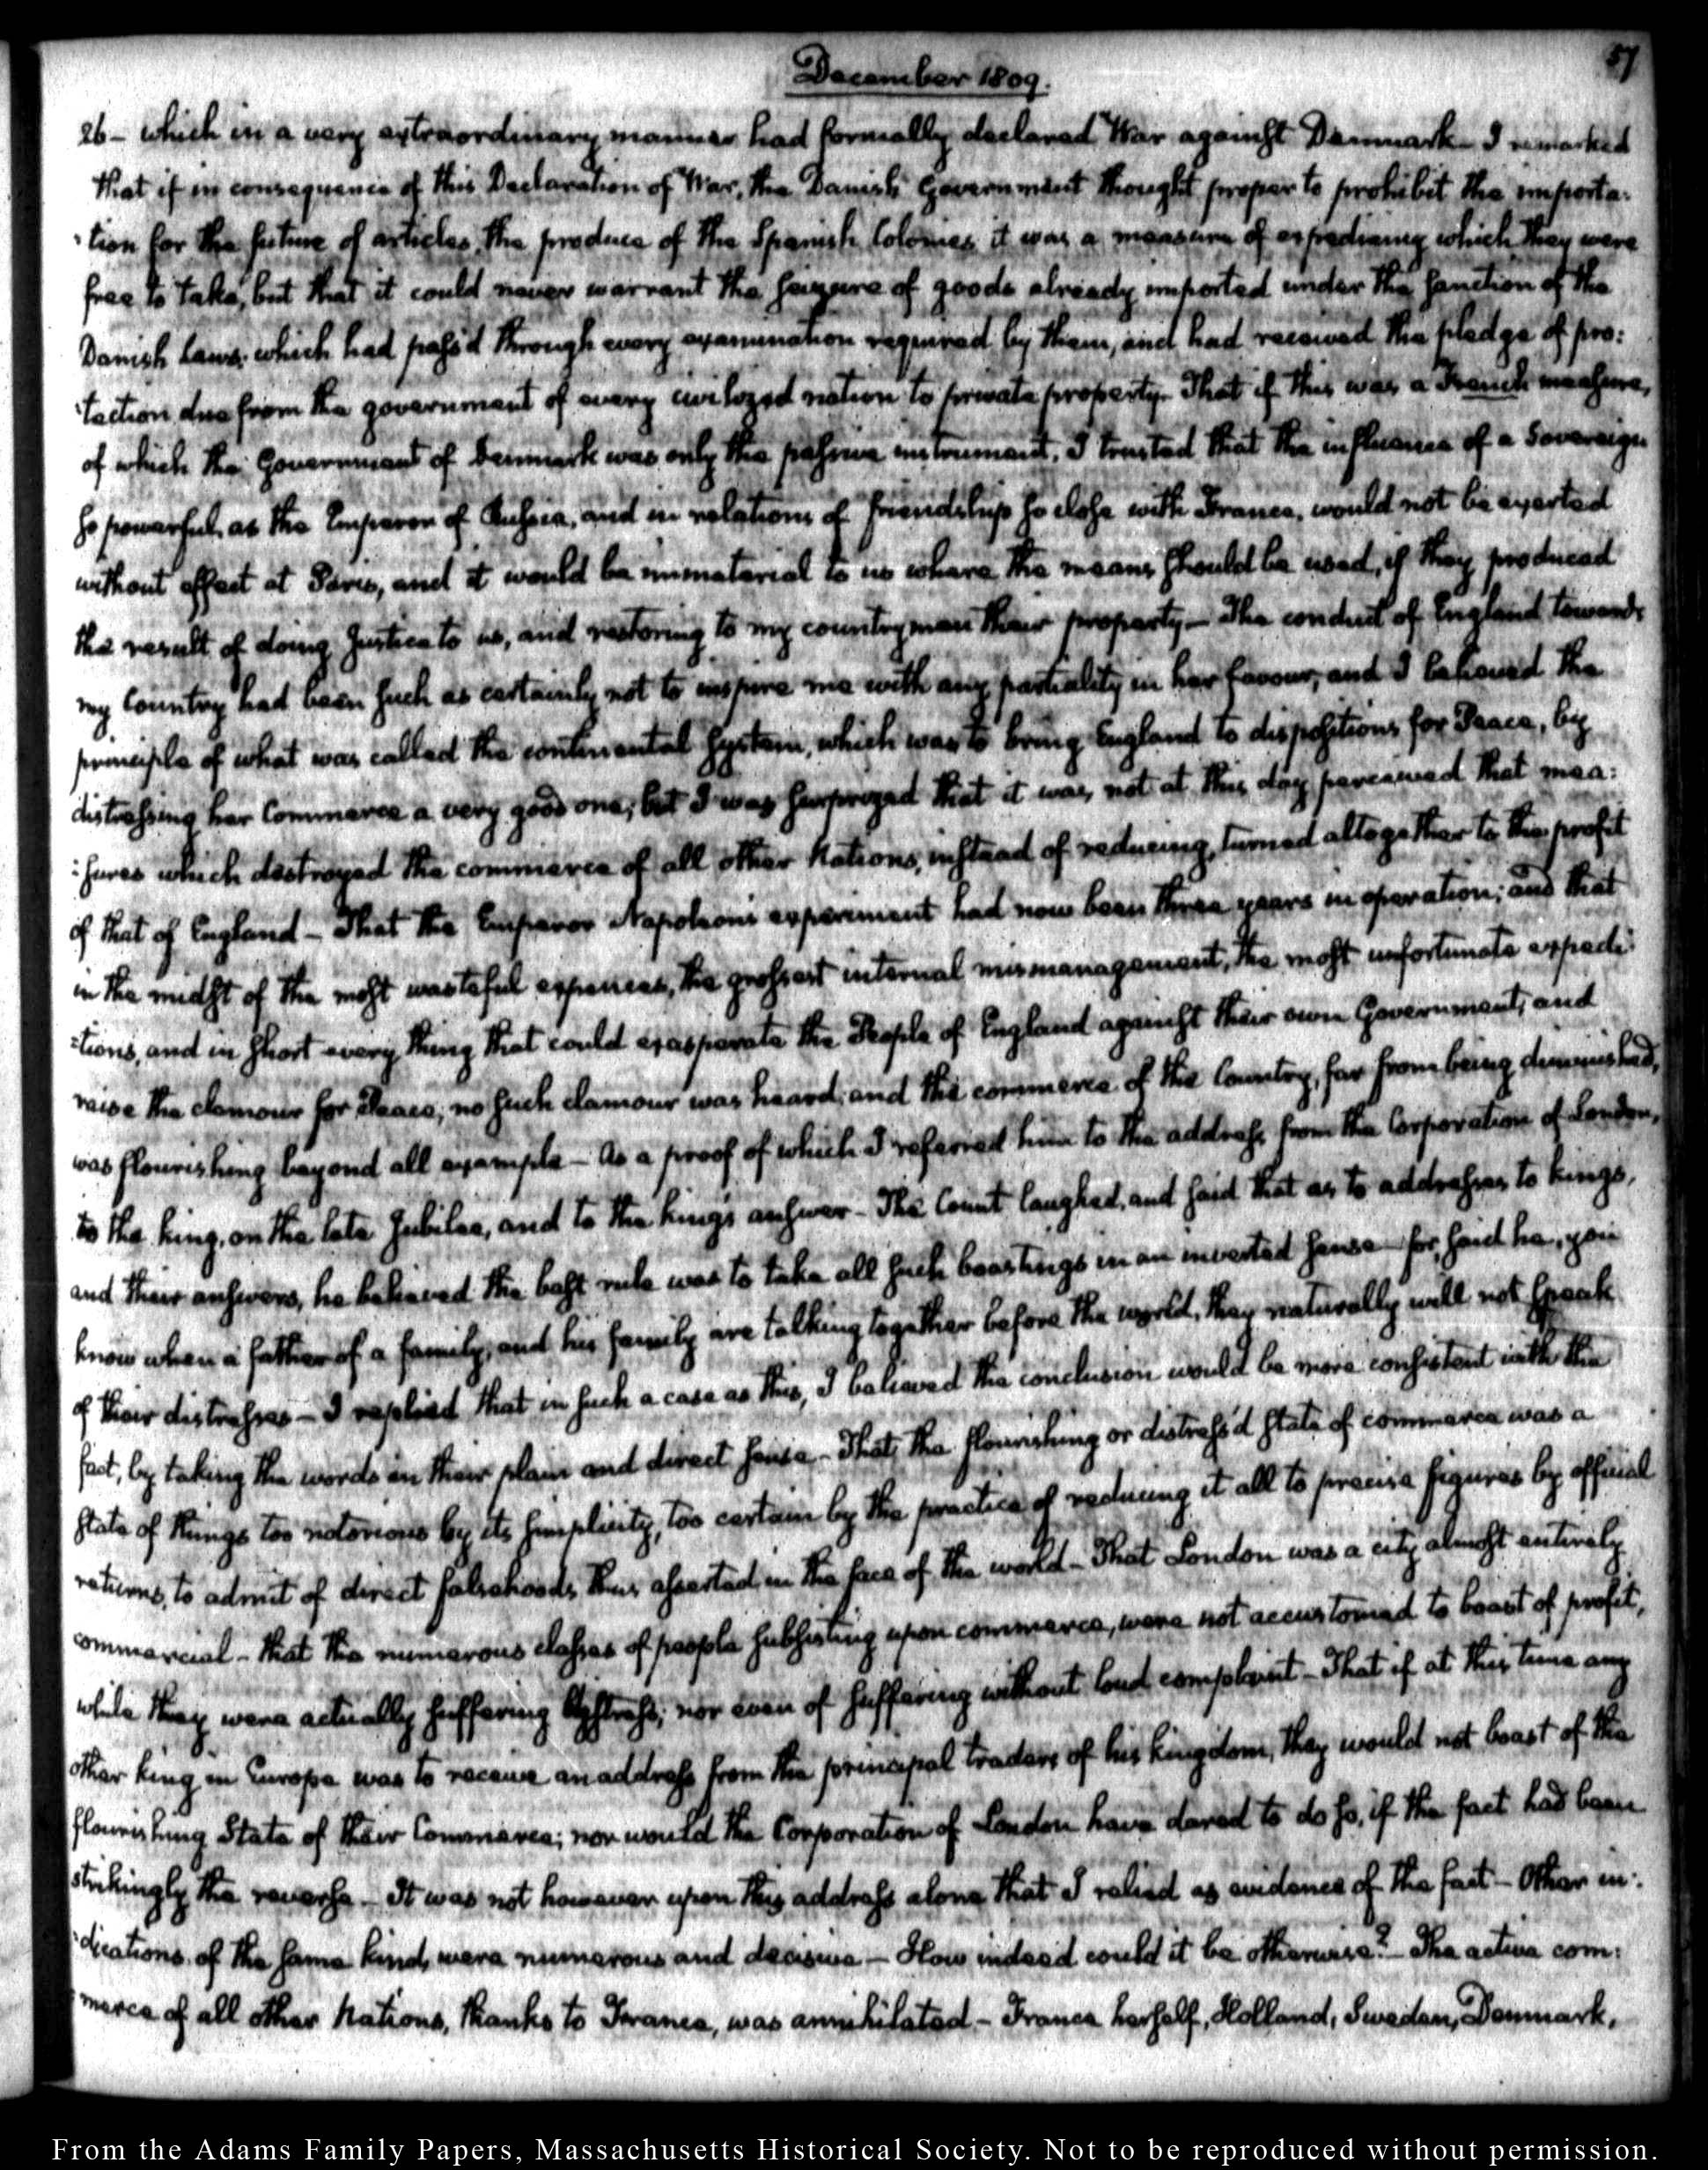 57
December 1809.
26 - which in a very extraordinary manner had formally declared War against Denmark - I remarked
that if in consequence of this Declaration of War, the Danish Government thought proper to prohibit the importa:
:tion for the future of articles, the produce of the Spanish Colonies, it was a measure of expediency which they were
free to take, but that it could never warrant the seizure of goods already imported under the sanction of the
Danish Laws, which had pass'd through every examination required by them, and had received the pledge of pro:
:tection due from the government of every civilized nation to private property - That if this was a French measure,
of which the Government of Denmark was only the passive instrument, I trusted that the influence of a Sovereign
so powerful, as the Emperor of Russia, and in relations of friendship so close with France, would not be exerted
without effect at Paris, and it would be immaterial to us where the means should be used, if they produced
the result of doing Justice to us, and restoring to my countrymen their property - The conduct of England towards
my Country had been such as certainly not to inspire me with any partiality in her favour, and I believed the
principle of what was called the continental system, which was to bring England to dispositions for Peace, by
distressing her Commerce a very good one; but I was surprized that it was not at this day perceived that mea:
:sures which destroyed the commerce of all other Nations, instead of reducing, turned altogether to the profit
of that of England - That the Emperor Napoleon's experiment had now been three years in operation; and that
in the midst of the most wasteful expences, the grossest internal mismanagement, the most unfortunate expedi:
:tions, and in short every thing that could exasperate the People of England against their own Government, and
raise the clamour for Peace, no such clamour was heard, and the commerce of the Country, far from being diminished,
was flourishing beyond all example - As a proof of which I referred him to the address from the Corporation of London,
to the king, on the late Jubilee, and to the king's answer - The Count laughed, and said that as to addresses to kings,
and their answers, he believed the best rule was to take all such boastings in an inverted sense - for, said he, you
know when a father of a family, and his family are talking together before the world, they naturally will not speak
of their distresses - I replied that in such a case as this, I believed the conclusion would be more consistent with the
fact, by taking the words in their plain and direct sense - That the flourishing or distress'd state of commerce was a
state of things too notorious by its simplicity, too certain by the practice of reducing it all to precise figures by official
returns, to admit of direct falsehoods thus asserted in the face of the world - That London was a city almost entirely
commercial - that the numerous classes of people subsisting upon commerce, were not accustomed to boast of profit,
while they were actually suffering distress; nor even of suffering without loud complaint - That if at this time any
other king in Europe was to receive an address from the principal traders of his kingdom, they would not boast of the
flourishing State of their Commerce; nor would the Corporation of London have dared to do so, if the fact had been
strikingly the reverse - It was not however upon this address alone that I relied as evidence of the fact - Other in:
:dications of the same kind, were numerous and decisive - How indeed could it be otherwise? - The active com:
:merce of all other Nations, thanks to France, was annihilated - France herself, Holland, Sweden, Denmark,
From the Adams Family Papers, Massachusetts Historical Society. Not to be reproduced without permission.